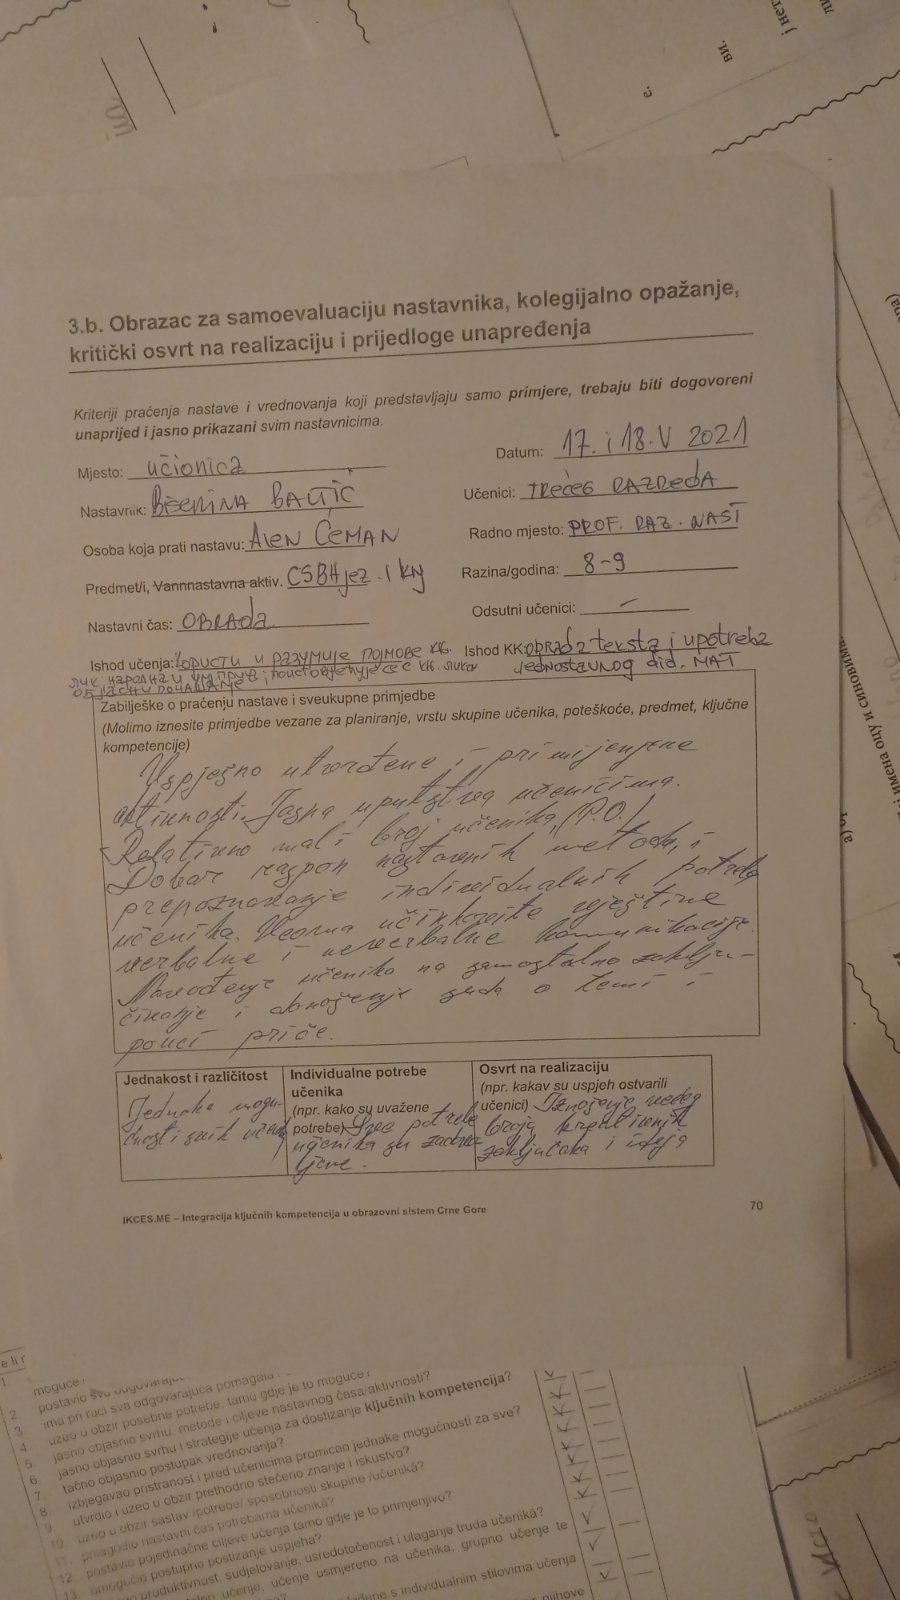 3.b. Obrazac za samoevaluaciju nastavnika, kolegijalno opažanje,
kritički osvrt na realizaciju i prijedloge unapređenja
Kriteriji praćenja nastave i vrednovanja koji predstavljaju samo primjere, trebaju biti dogovoreni
unaprijed i jasno prikazani svim nastavnicima.
Mjesto: učionica
Datum: 17. i 18. V 2021
Nastavnik: BALTIĆ
Učenici: TREĆEG RAZREDA
Osoba koja prati nastavu: ALEN ĆEMAN
Radno mjesto: PROF. RAZ. NAST
Predmet/i, Vannnastavna aktiv. CSBH jez. i knj
Razina/godina: 8-9
Nastavni čas: OBRADA
Odsutni učenici: -
Ishod učenja: Користи и разумије појмове књ.
Ishod KK: obrada teksta i upotreba
jednostavnog did. MAT
Zabilješke o praćenju nastave i sveukupne primjedbe
(Molimo iznesite primjedbe vezane za planiranje, vrstu skupine učenika, poteškoće, predmet, ključne
kompetencije)
Uspješno utvrđene i primijenjene
aktivnosti. Jasna uputstva učenicima.
Relativno mali broj učenika, (P.O.)
Dobar raspon nastavnih metoda, i
prepoznavanje individualnih potreba
učenika. Veoma učinkovite vještine
verbalne i neverbalne komunikacije.
Navođenje učenika na samostalno zaklju-
čivanje i donošenje suda o temi i
pouci priče.
Jednakost i različitost
Jednake mogu-
ćnosti svih učenika
Individualne potrebe
učenika
(npr. kako su uvažene
potrebe) Sve potrebe
učenika su zadovo-
ljene.
Osvrt na realizaciju
(npr. kakav su uspjeh ostvarili
učenici) Iznošenje većeg
broja kreativnih
zaključaka i ideja
IKCES.ME – Integracija ključnih kompetencija u obrazovni sistem Crne Gore
70
moguće?
ima pri ruci sva odgovarajuća pomagala
uzeo u obzir posebne potrebe, tamo gdje je to moguće?
jasno objasnio svrhu, metode i ciljeve nastavnog časa/aktivnosti?
jasno objasnio svrhu i strategije učenja za dostizanje ključnih kompetencija?
tačno objasnio postupak vrednovanja?
izbjegavao pristranost i pred učenicima promicao jednake mogućnosti za sve?
utvrdio i uzeo u obzir prethodno stečeno znanje i iskustvo?
uzeo u obzir sastav /potrebe/ sposobnosti skupine /učenika?
prilagodio nastavni čas potrebama učenika?
postavio pojedinačne ciljeve učenja tamo gdje je to primjenjivo?
omogućio postupno postizanje uspjeha?
produktivnost, sudjelovanje, usredotočenost i ulaganje truda učenika?
učenje, učenje usmjereno na učenika, grupno učenje te
s individualnim stilovima učenja